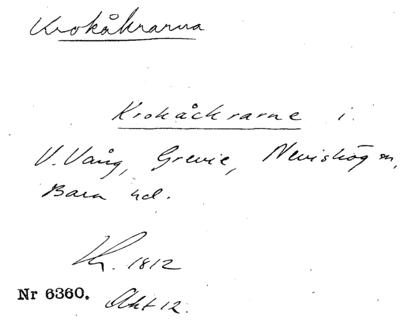 Krokåkrarna
Krokåckrarne i
V. Vång, Grevie, Nevishög sn,
Bara hd.
Kr. 1812
Nr 6360. Akt 12.